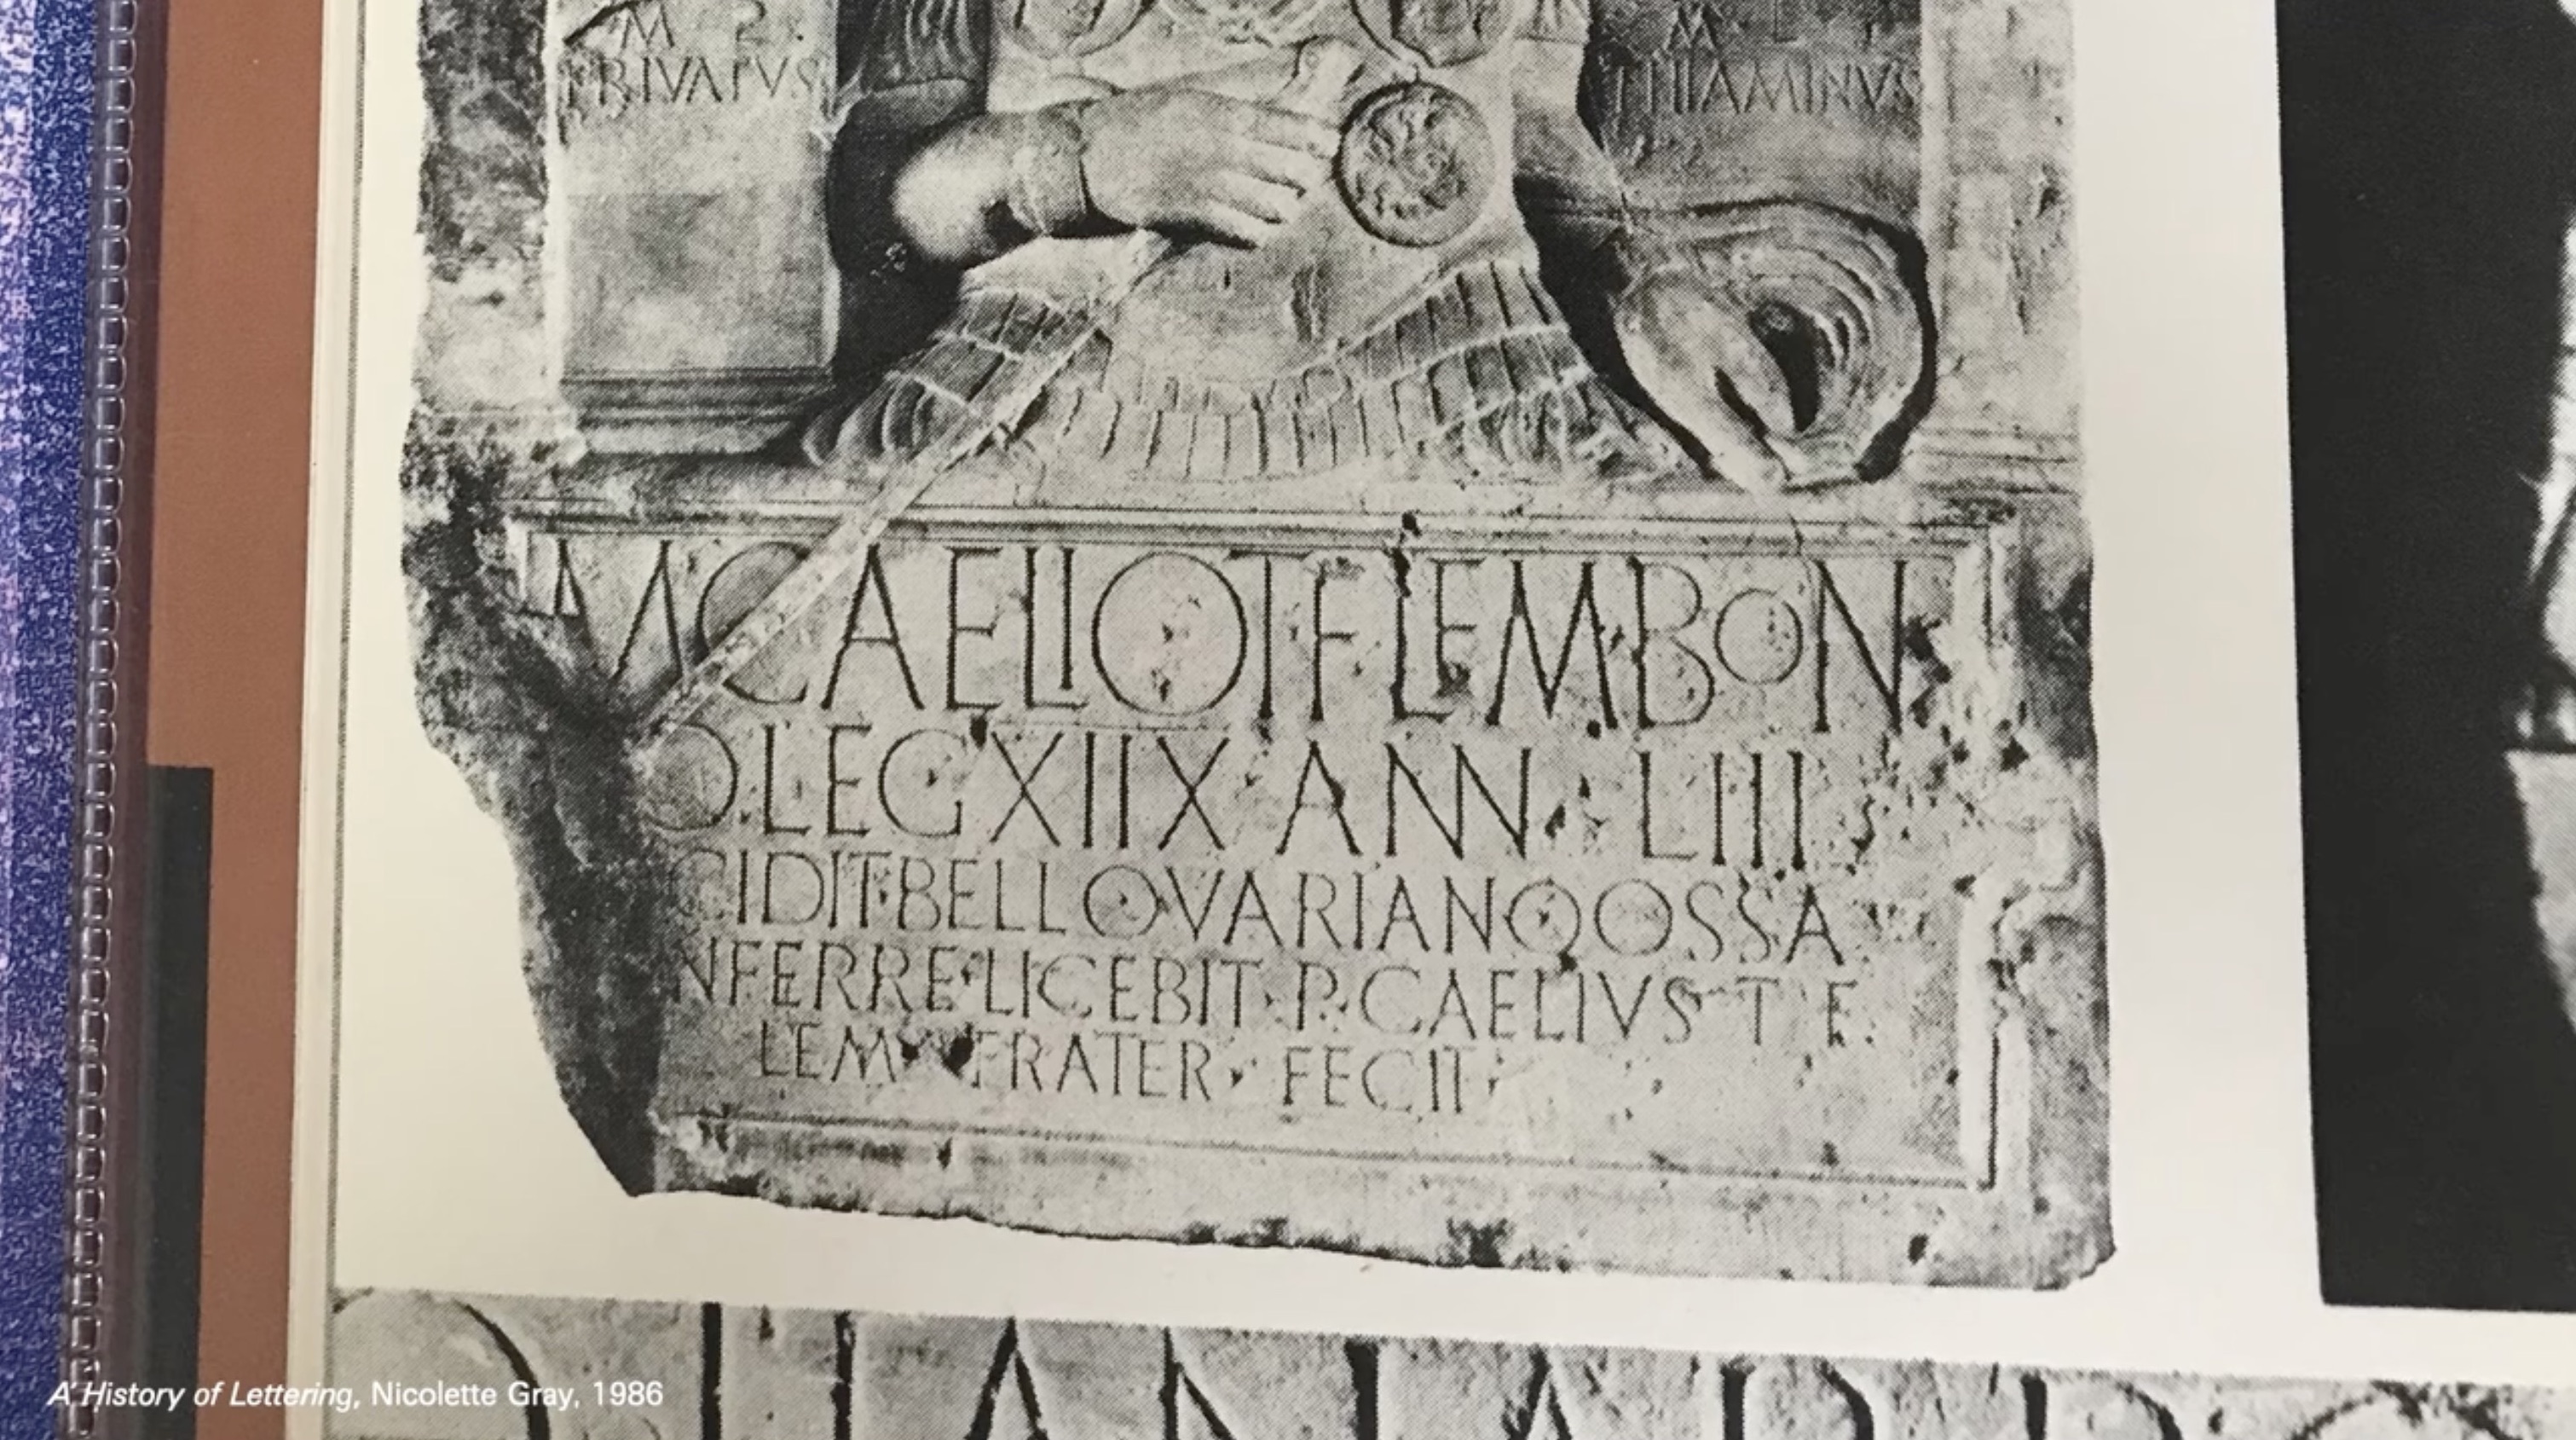 M L
PRIVATVS
M L
THIAMINVS
M CAELIO T F LEM BON
O LEG XIIX ANN LIII
CIDIT BELLO VARIANO OSSA
NFERRE LICEBIT P CAELIVS T F
LEM FRATER FECIT
A History of Lettering, Nicolette Gray, 1986